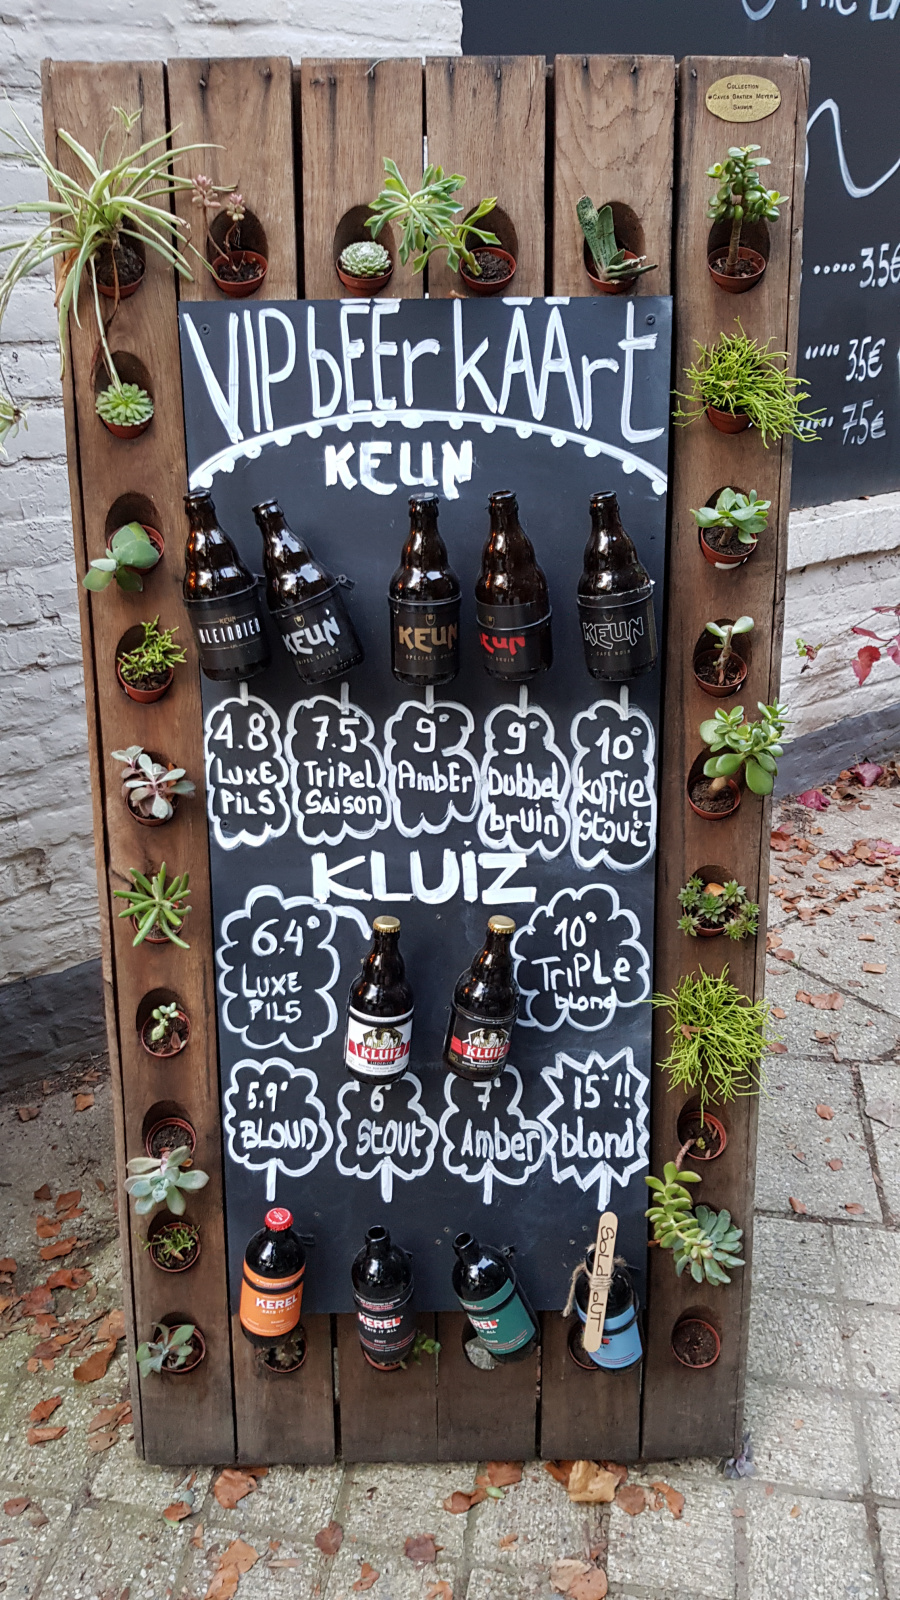 COLLECTION
CAVES BRATIEN MEYER
SAUMUR
3.5€
3.5€
7.5€
VIP bEEr kÄÄrt
KEUN
KLEINBIER
KEUN
TRIPEL SAISON
KEUN
KEUN
KEUN
4.8
LUXE
PILS
7.5
TRiPEL
SAISON
9°
AmbEr
9°
Dubbel
bruin
10°
koffie
Stout
KLUiZ
6,4°
LUXE
PILS
10°
TriPLe
blond
KLUIZ
KLUIZ
5.9°
BLOND
6°
Stout
7°
Amber
15°!!
blond
KEREL
EATS IT ALL
KEREL
EATS IT ALL
KEREL
SOLD OUT